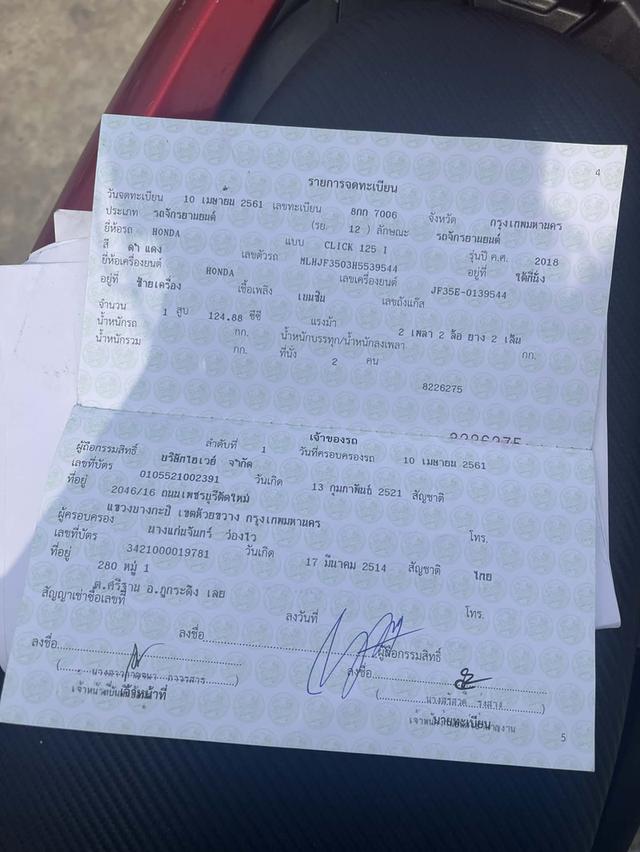 4
รายการจดทะเบียน
วันจดทะเบียน 10 เมษายน 2561 เลขทะเบียน 8กก 7006 จังหวัด กรุงเทพมหานคร
ประเภท รถจักรยานยนต์ (รย. 12 ) ลักษณะ รถจักรยานยนต์
ยี่ห้อรถ HONDA แบบ CLICK 125 I รุ่นปี ค.ศ. 2018
สี ดำ แดง เลขตัวรถ MLHJF3503H5539544 อยู่ที่ ใต้ที่นั่ง
ยี่ห้อเครื่องยนต์ HONDA เลขเครื่องยนต์ JF35E-0139544
อยู่ที่ ซ้ายเครื่อง เชื้อเพลิง เบนซิน เลขถังแก๊ส
จำนวน 1 สูบ 124.88 ซีซี แรงม้า 2 เพลา 2 ล้อ ยาง 2 เส้น
น้ำหนักรถ กก. น้ำหนักบรรทุก/น้ำหนักลงเพลา กก.
น้ำหนักรวม กก. ที่นั่ง 2 คน
8226275
8226275
เจ้าของรถ
ลำดับที่ 1 วันที่ครอบครองรถ 10 เมษายน 2561
ผู้ถือกรรมสิทธิ์ บริษัทไฮเวย์ จำกัด
เลขที่บัตร 0105521002391 วันเกิด 13 กุมภาพันธ์ 2521 สัญชาติ
ที่อยู่ 2046/16 ถนนเพชรบุรีตัดใหม่
แขวงบางกะปิ เขตห้วยขวาง กรุงเทพมหานคร โทร.
ผู้ครอบครอง นางแก่นจันทร์ ว่องไว
เลขที่บัตร 3421000019781 วันเกิด 17 มีนาคม 2514 สัญชาติ ไทย
ที่อยู่ 280 หมู่ 1
ต.ศรีฐาน อ.ภูกระดึง เลย โทร.
สัญญาเช่าซื้อเลขที่ ลงวันที่
ลงชื่อ ผู้ถือกรรมสิทธิ์
ลงชื่อ ลงชื่อ
เจ้าหน้าที่ นายทะเบียน
5